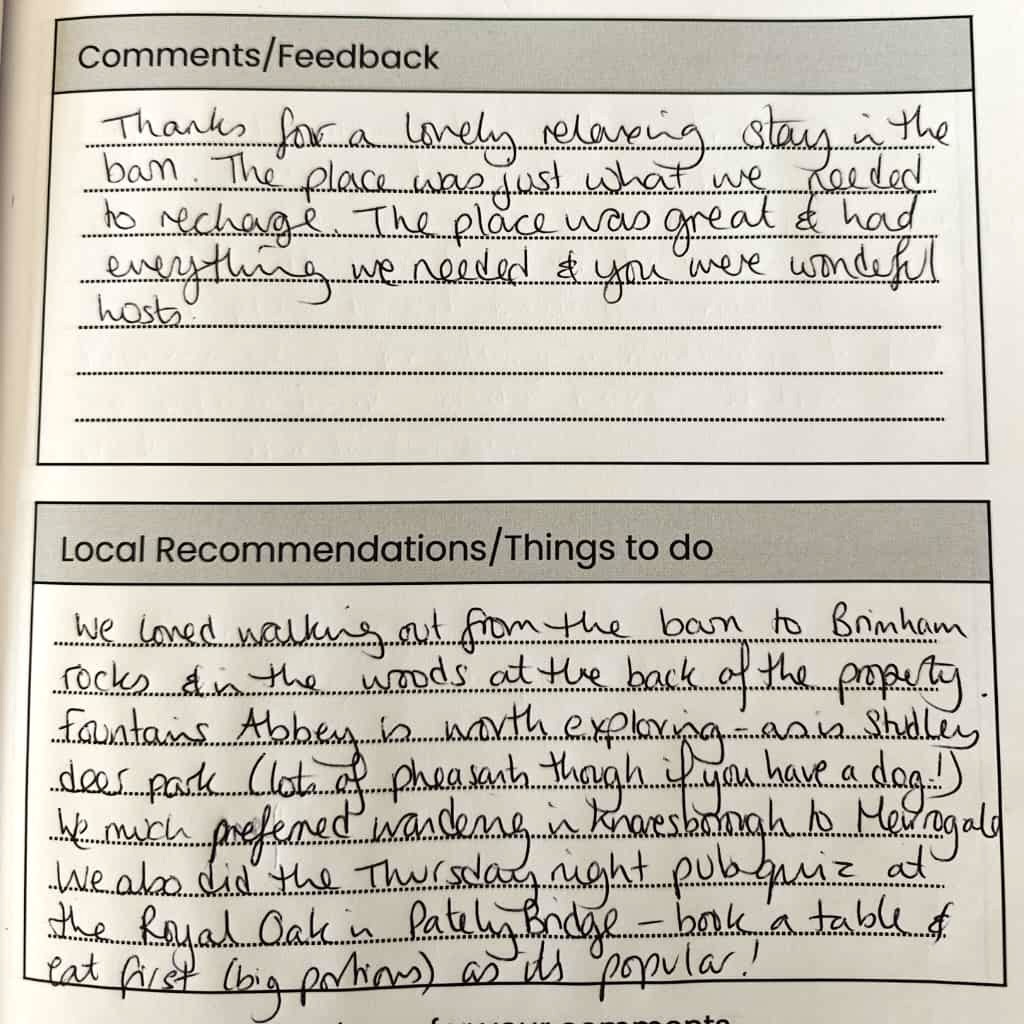 Comments/Feedback
Thanks for a lovely relaxing stay in the
barn. The place was just what we needed
to recharge. The place was great & had
everything we needed & you were wonderful
hosts.
Local Recommendations/Things to do
We loved walking out from the barn to Brimham
rocks & in the woods at the back of the property.
Fountains Abbey is worth exploring - as is Studley
deer park (lots of pheasants though if you have a dog!)
We much preferred wandering in Knaresborough to
We also did the Thursday night pub quiz at
the Royal Oak in Pately Bridge – book a table &
eat first (big portions) as its popular!
for your comments